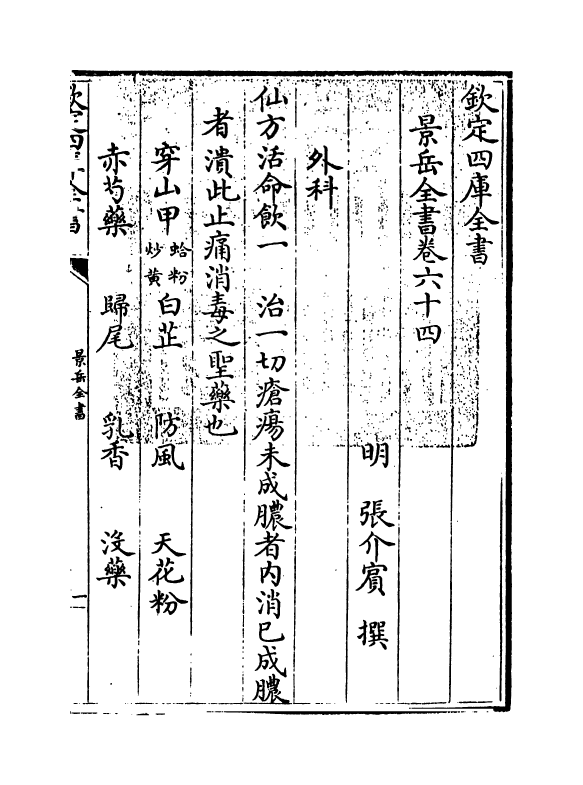 欽定四庫全書
景岳全書卷六十四
明 張介賓 撰
外科
仙方活命飲一 治一切瘡瘍未成膿者内消已成膿
者潰此止痛消毒之聖藥也
穿山甲蛤粉炒黄 白芷 防風 天花粉
赤芍藥 歸尾 乳香 沒藥
欽定四庫全書
景岳全書
一